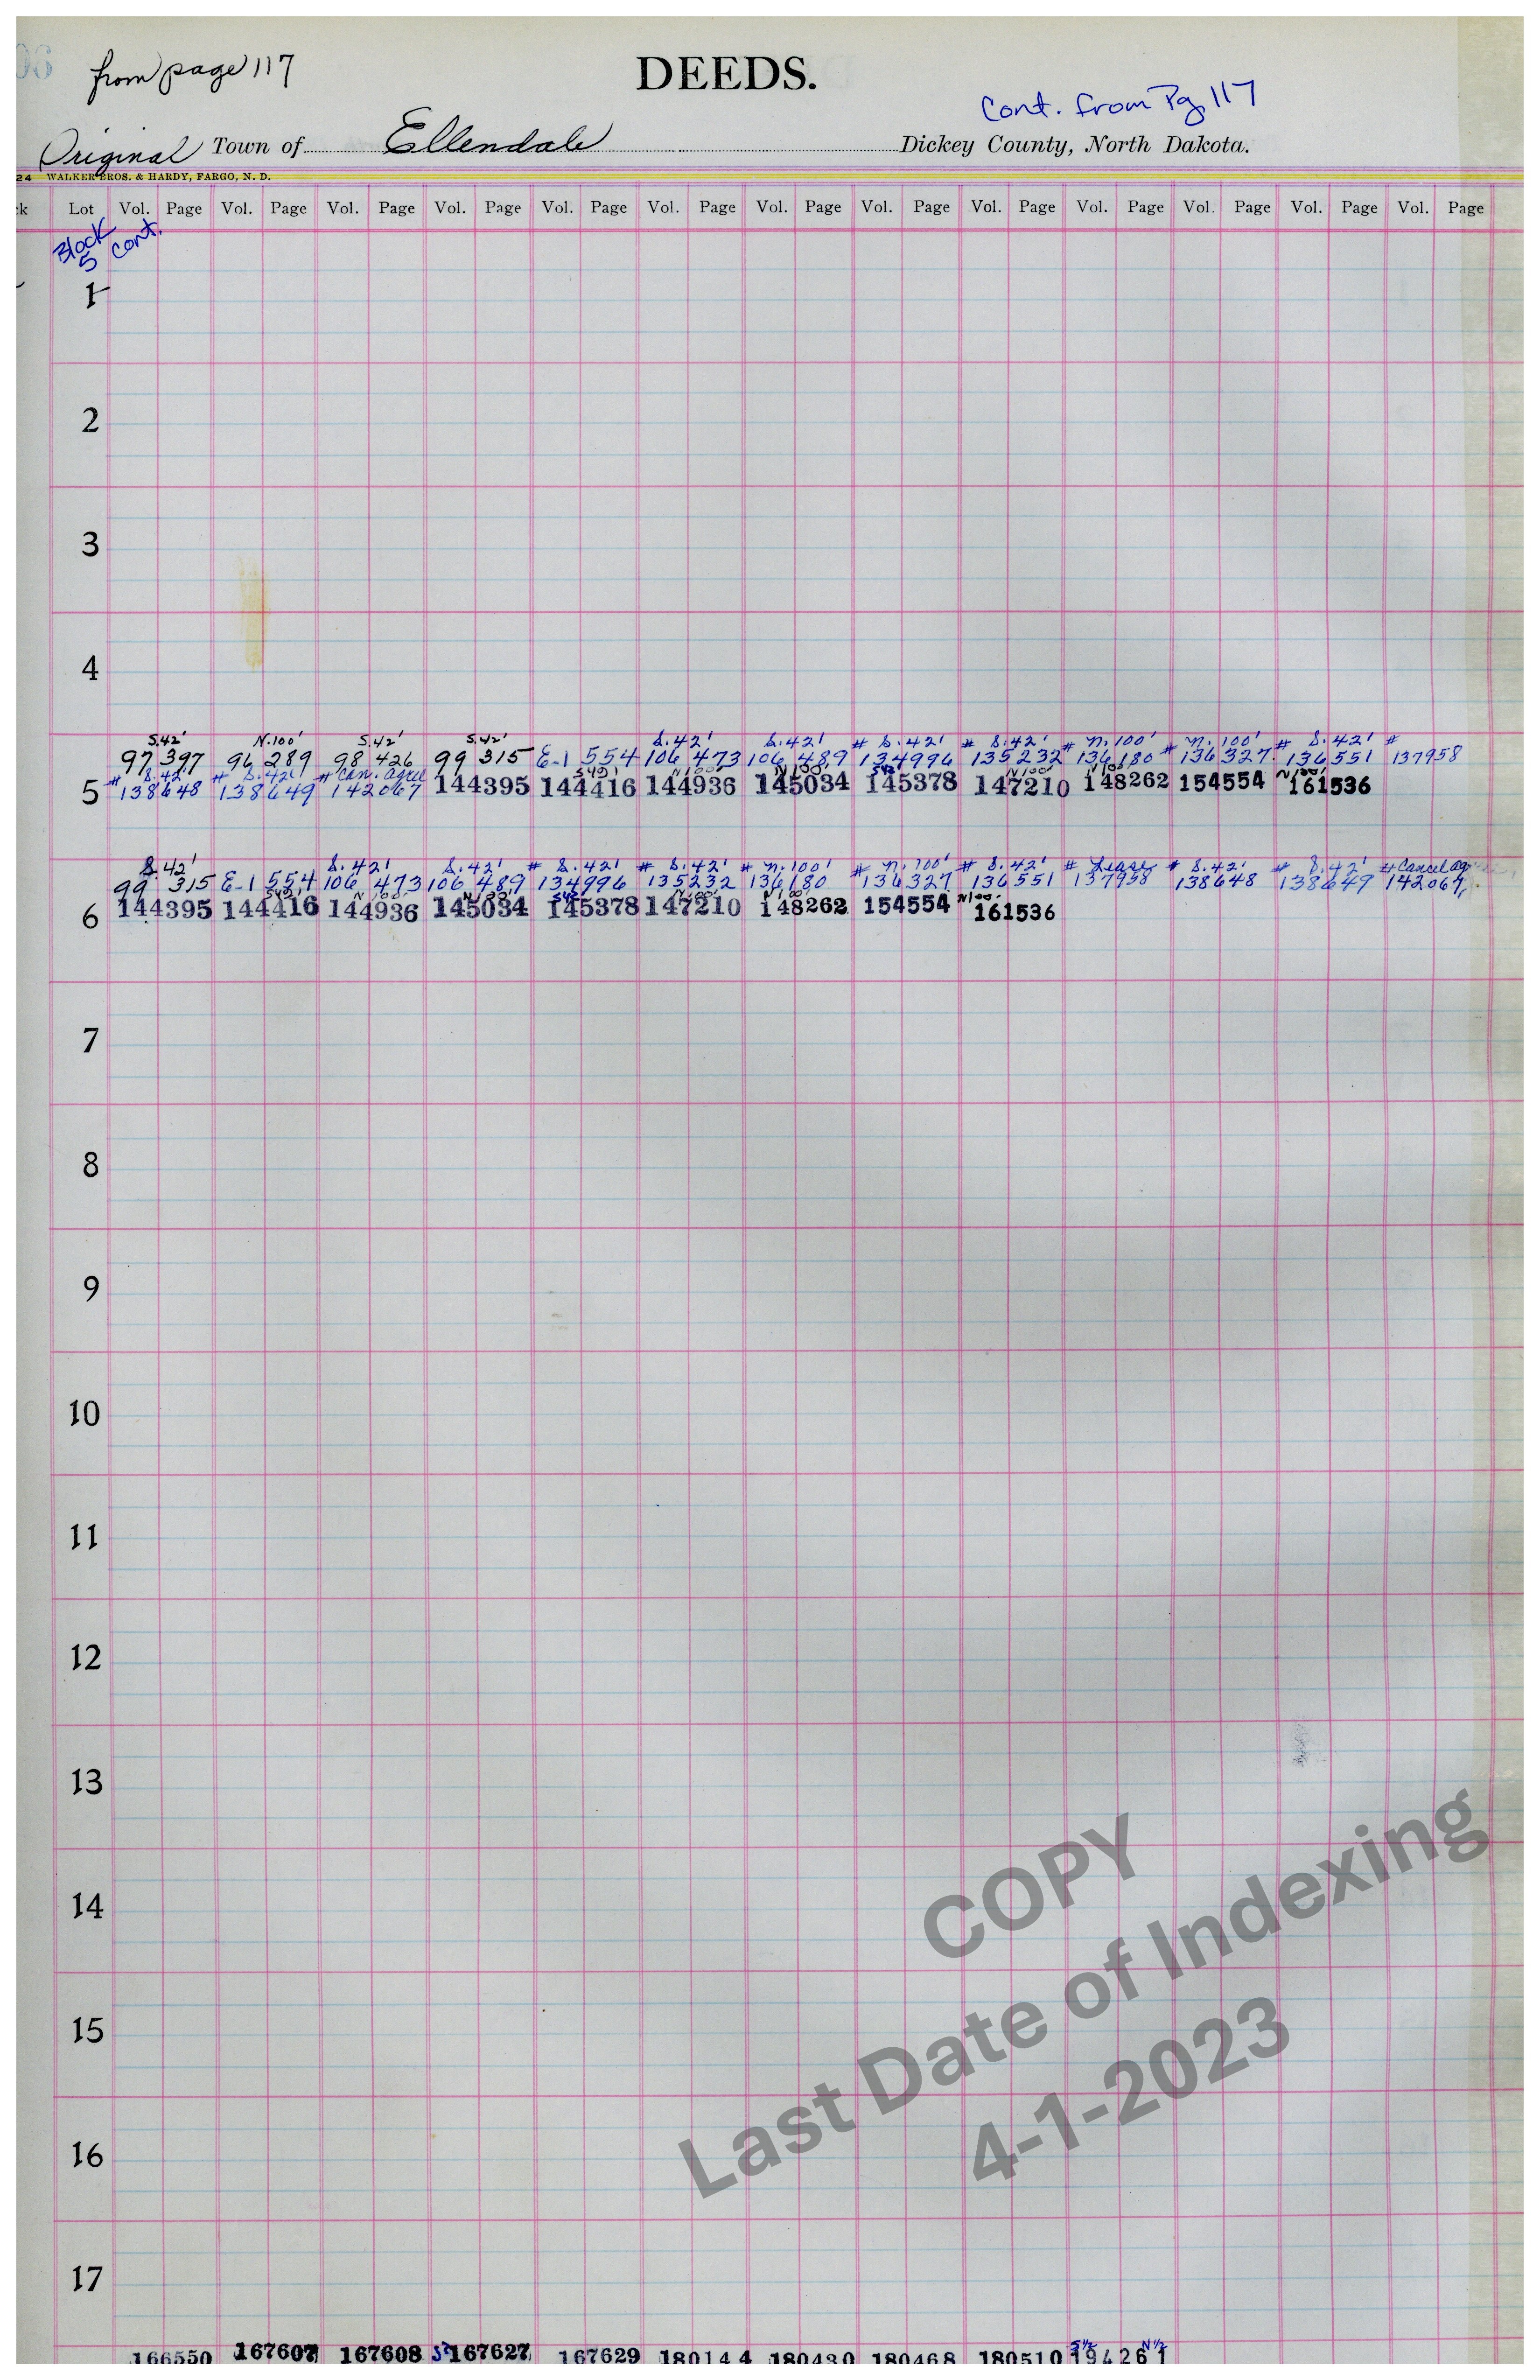 from page 117
DEEDS.
Cont. from Pg 117
Original Town of Ellendale Dickey County, North Dakota.
24 WALKER BROS. & HARDY, FARGO, N. D.
Lot Vol. Page Vol. Page Vol. Page Vol. Page Vol. Page Vol. Page Vol. Page Vol. Page Vol. Page Vol. Page Vol. Page Vol. Page Vol. Page
Block 5 Cont.
1
2
3
4
S.42' N.100' S.42' S.42' S.42' S.42' # S.42' # S.42' # N.100' # N.100' # S.42' #
97 397 96 289 98 426 99 315 E-1 554 106 473 106 489 134996 135232 136180 136327 136551 137958
# S.42' # S.42' # Can. agree S42' N100' N100 S42' N100' N100' N100'
5 138648 138649 142067 144395 144416 144936 145034 145378 147210 148262 154554 161536
S.42' S.42' S.42' # S.42' # S.42' # N.100' # N.100' # S.42' # Lease # S.42' # S.42' # Cancel
99 315 E-1 554 106 473 106 489 134996 135232 136180 136327 136551 137958 138648 138649 142067
S42' N100' N100' S42' N100' N100' N100'
6 144395 144416 144936 145034 145378 147210 148262 154554 161536
7
8
9
10
11
12
13
14
15
16
17
COPY
Last Date of Indexing
4-1-2023
S½ N½
166550 167607 167608 167627 167629 180144 180430 180468 180510 194261